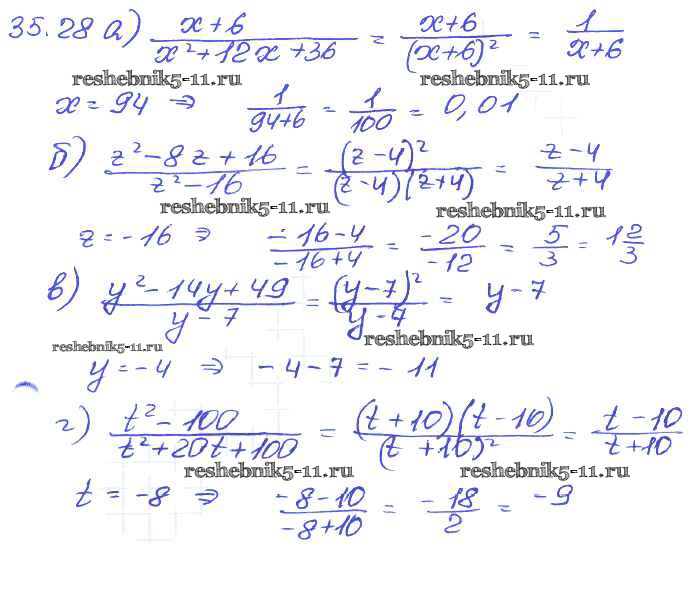 35.28 а) (x+6)/(x²+12x+36) = (x+6)/(x+6)² = 1/(x+6)
reshebnik5-11.ru reshebnik5-11.ru
x = 94 ⇒ 1/(94+6) = 1/100 = 0,01
б) (z²-8z+16)/(z²-16) = (z-4)²/((z-4)(z+4)) = (z-4)/(z+4)
reshebnik5-11.ru reshebnik5-11.ru
z = -16 ⇒ (-16-4)/(-16+4) = -20/-12 = 5/3 = 1 2/3
в) (y²-14y+49)/(y-7) = (y-7)²/(y-7) = y-7
reshebnik5-11.ru reshebnik5-11.ru
y = -4 ⇒ -4-7 = -11
г) (t²-100)/(t²+20t+100) = ((t+10)(t-10))/(t+10)² = (t-10)/(t+10)
reshebnik5-11.ru reshebnik5-11.ru
t = -8 ⇒ (-8-10)/(-8+10) = -18/2 = -9